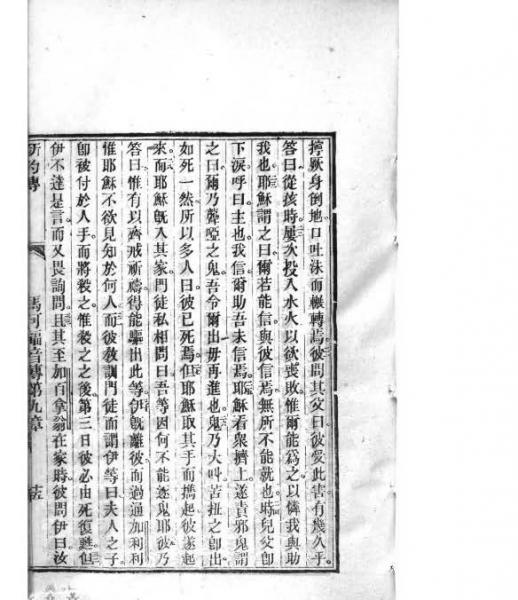 擰厥身倒地口吐沫而輾轉焉彼問其父曰彼愛此苦有幾久乎
答曰從孩時屢次投入水火以欲喪敗惟爾能為之以憐我與助
我也耶穌謂之曰爾若能信與彼信焉無所不能就也時兒父即
下淚呼曰主也我信爾助吾未信焉耶穌看眾擠上遂責邪鬼謂
之曰爾乃聾啞之鬼吾令爾出毋再進也鬼乃大叫苦扭之即出
如死一然所以多人曰彼已死焉但耶穌取其手而攜起彼遂起
來而耶穌既入其家門徒私相問曰吾等因何不能逐鬼耶彼乃
答曰惟有以齋戒祈禱得能驅出此等伊既離彼而過通加利利
惟耶穌不欲見知於何人而彼教訓門徒而謂伊等曰夫人之子
即被付於人手而將殺之惟殺之之後第三日彼必由死復甦但
伊不達是言而又畏詢問且其至加百拿翁在家時彼問伊曰汝
新約傳 馬可福音傳第九章